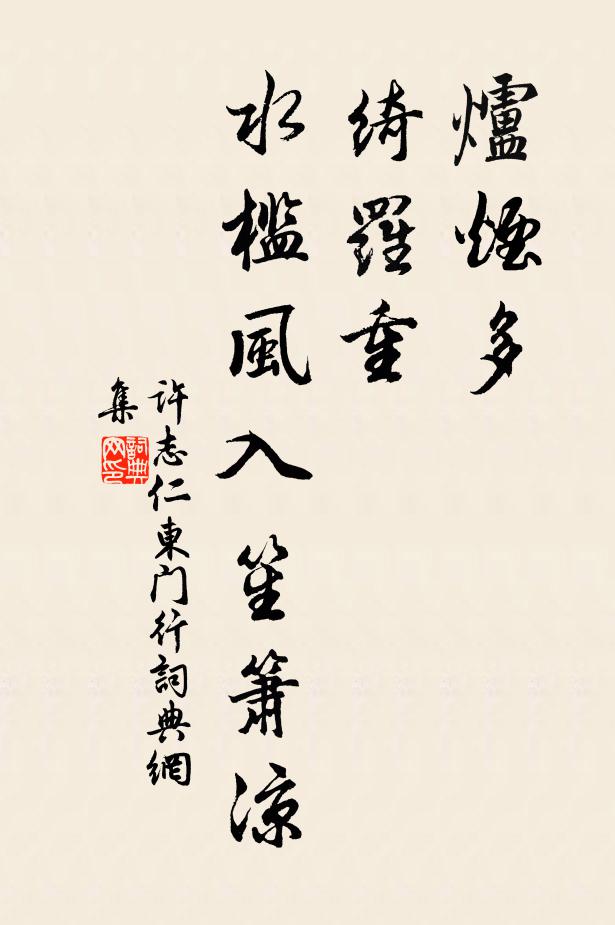 爐煙多
綺羅重
水檻風入笙簫涼
許志仁東门行詞典網
集
詞典
网印